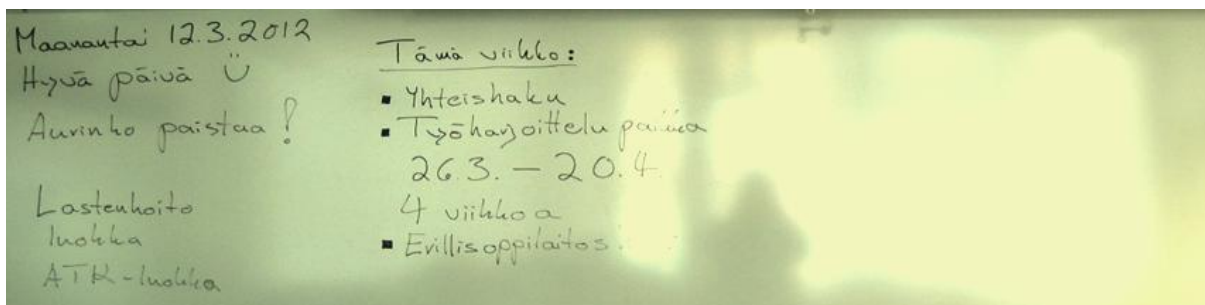 Maanantai 12.3.2012
Hyvä päivä Ü
Aurinko paistaa!
Lastenhoito
luokka
ATK-luokka
Tämä viikko:
▪ Yhteishaku
▪ Työharjoittelu
26.3. – 20.4.
4 viikkoa
▪ Erillisoppilaitos